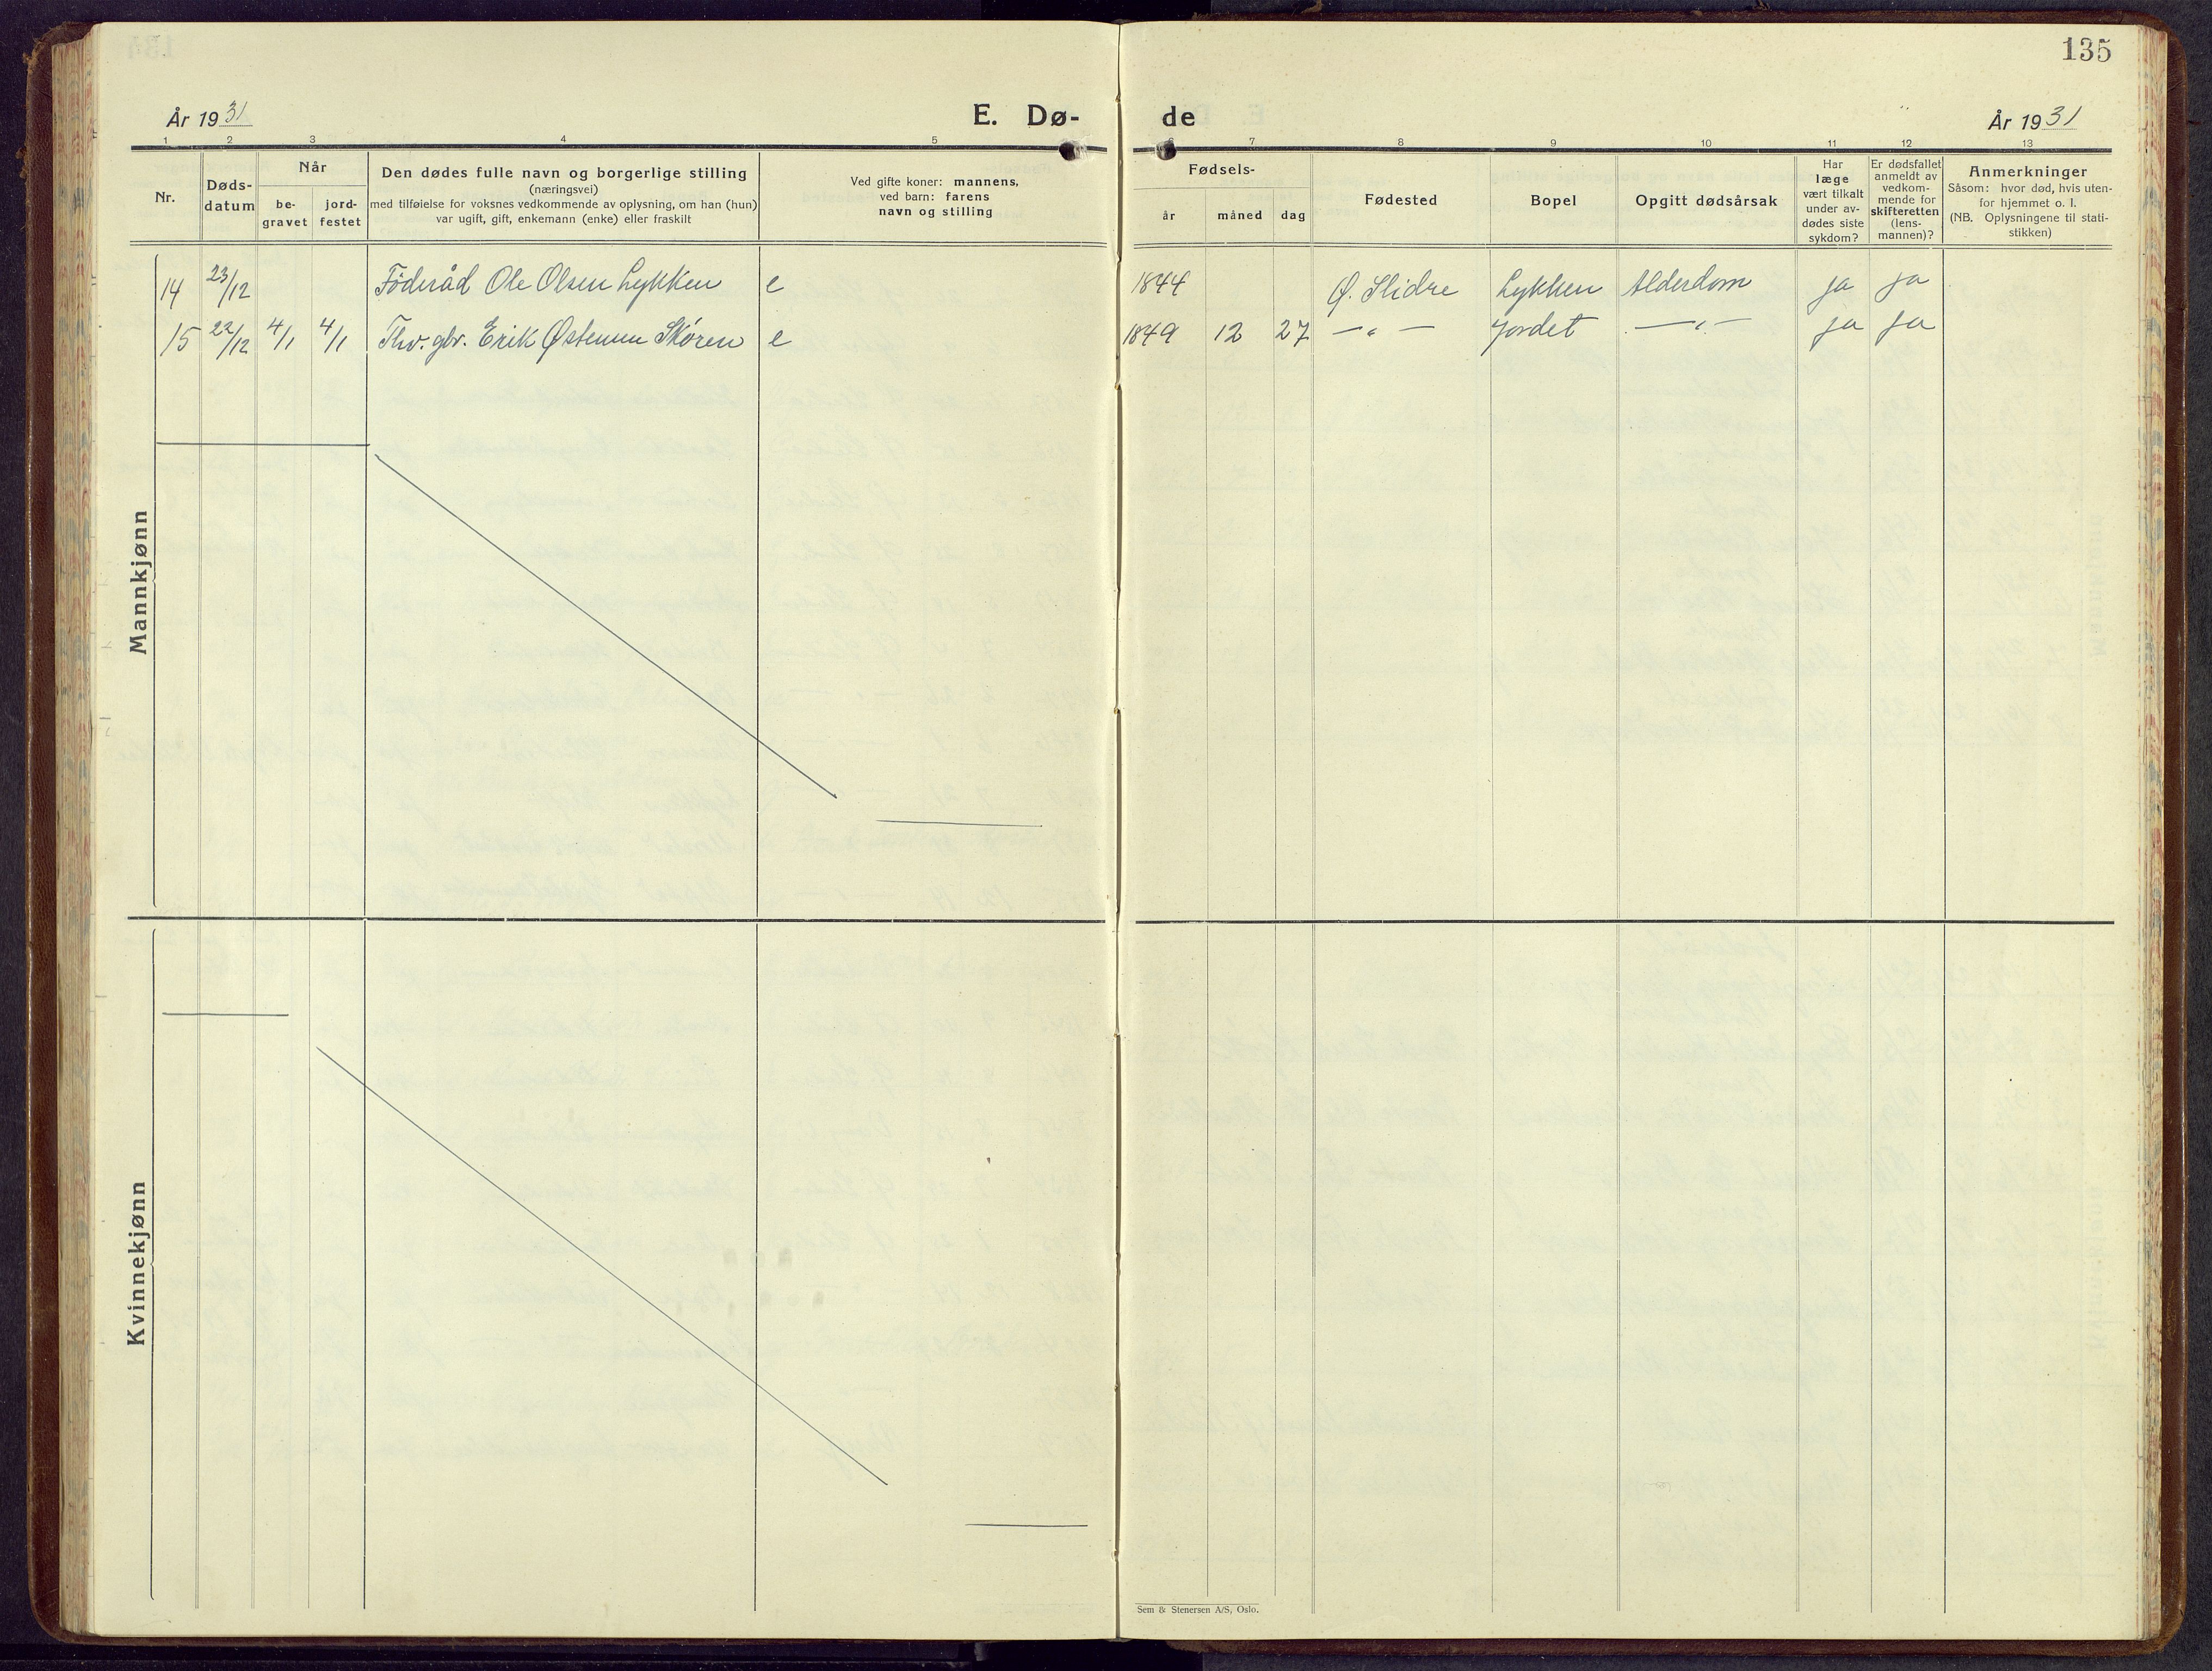 135
År 1931
E. Dø-
de
År 1931
1 2 3 4 5 6 7 8 9 10 11 12 13
Nr.
Døds-
datum
Når
be-
gravet
jord-
festet
Den dødes fulle navn og borgerlige stilling
(næringsvei)
med tilføielse for voksnes vedkommende av oplysning, om han (hun)
var ugift, gift, enkemann (enke) eller fraskilt
Ved gifte koner: mannens,
ved barn: farens
navn og stilling
Fødsels-
år
måned
dag
Fødested
Bopel
Opgitt dødsårsak
Har
læge
vært tilkalt
under av-
dødes siste
sykdom?
Er dødsfallet
anmeldt av
vedkom-
mende for
skifteretten
(lens-
mannen)?
Anmerkninger
Såsom: hvor død, hvis uten-
for hjemmet o. l.
(NB. Oplysningene til stati-
stikken)
Mannkjønn
14 23/12 Föderåd Ole Olsen Lykken e 1844 Ø. Slidre Lykken Alderdom ja ja
15 22/12 4/1 4/1 Thv. gbr. Erik Østenun Skóren e 1849 12 27 —〃— Jordet —〃— ja ja
Kvinnekjønn
Sem & Stenersen A/S, Oslo.